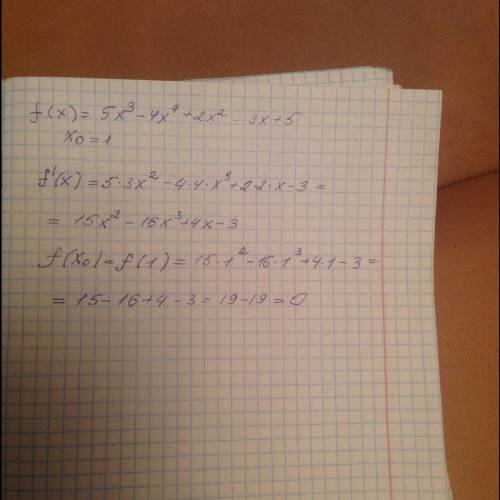 f(x) = 5x³ - 4x⁴ + 2x² - 3x + 5
x₀ = 1
f'(x) = 5·3x² - 4·4·x³ + 2·2·x - 3 =
= 15x² - 16x³ + 4x - 3
f(x₀) = f(1) = 15·1² - 16·1³ + 4·1 - 3 =
= 15 - 16 + 4 - 3 = 19 - 19 = 0